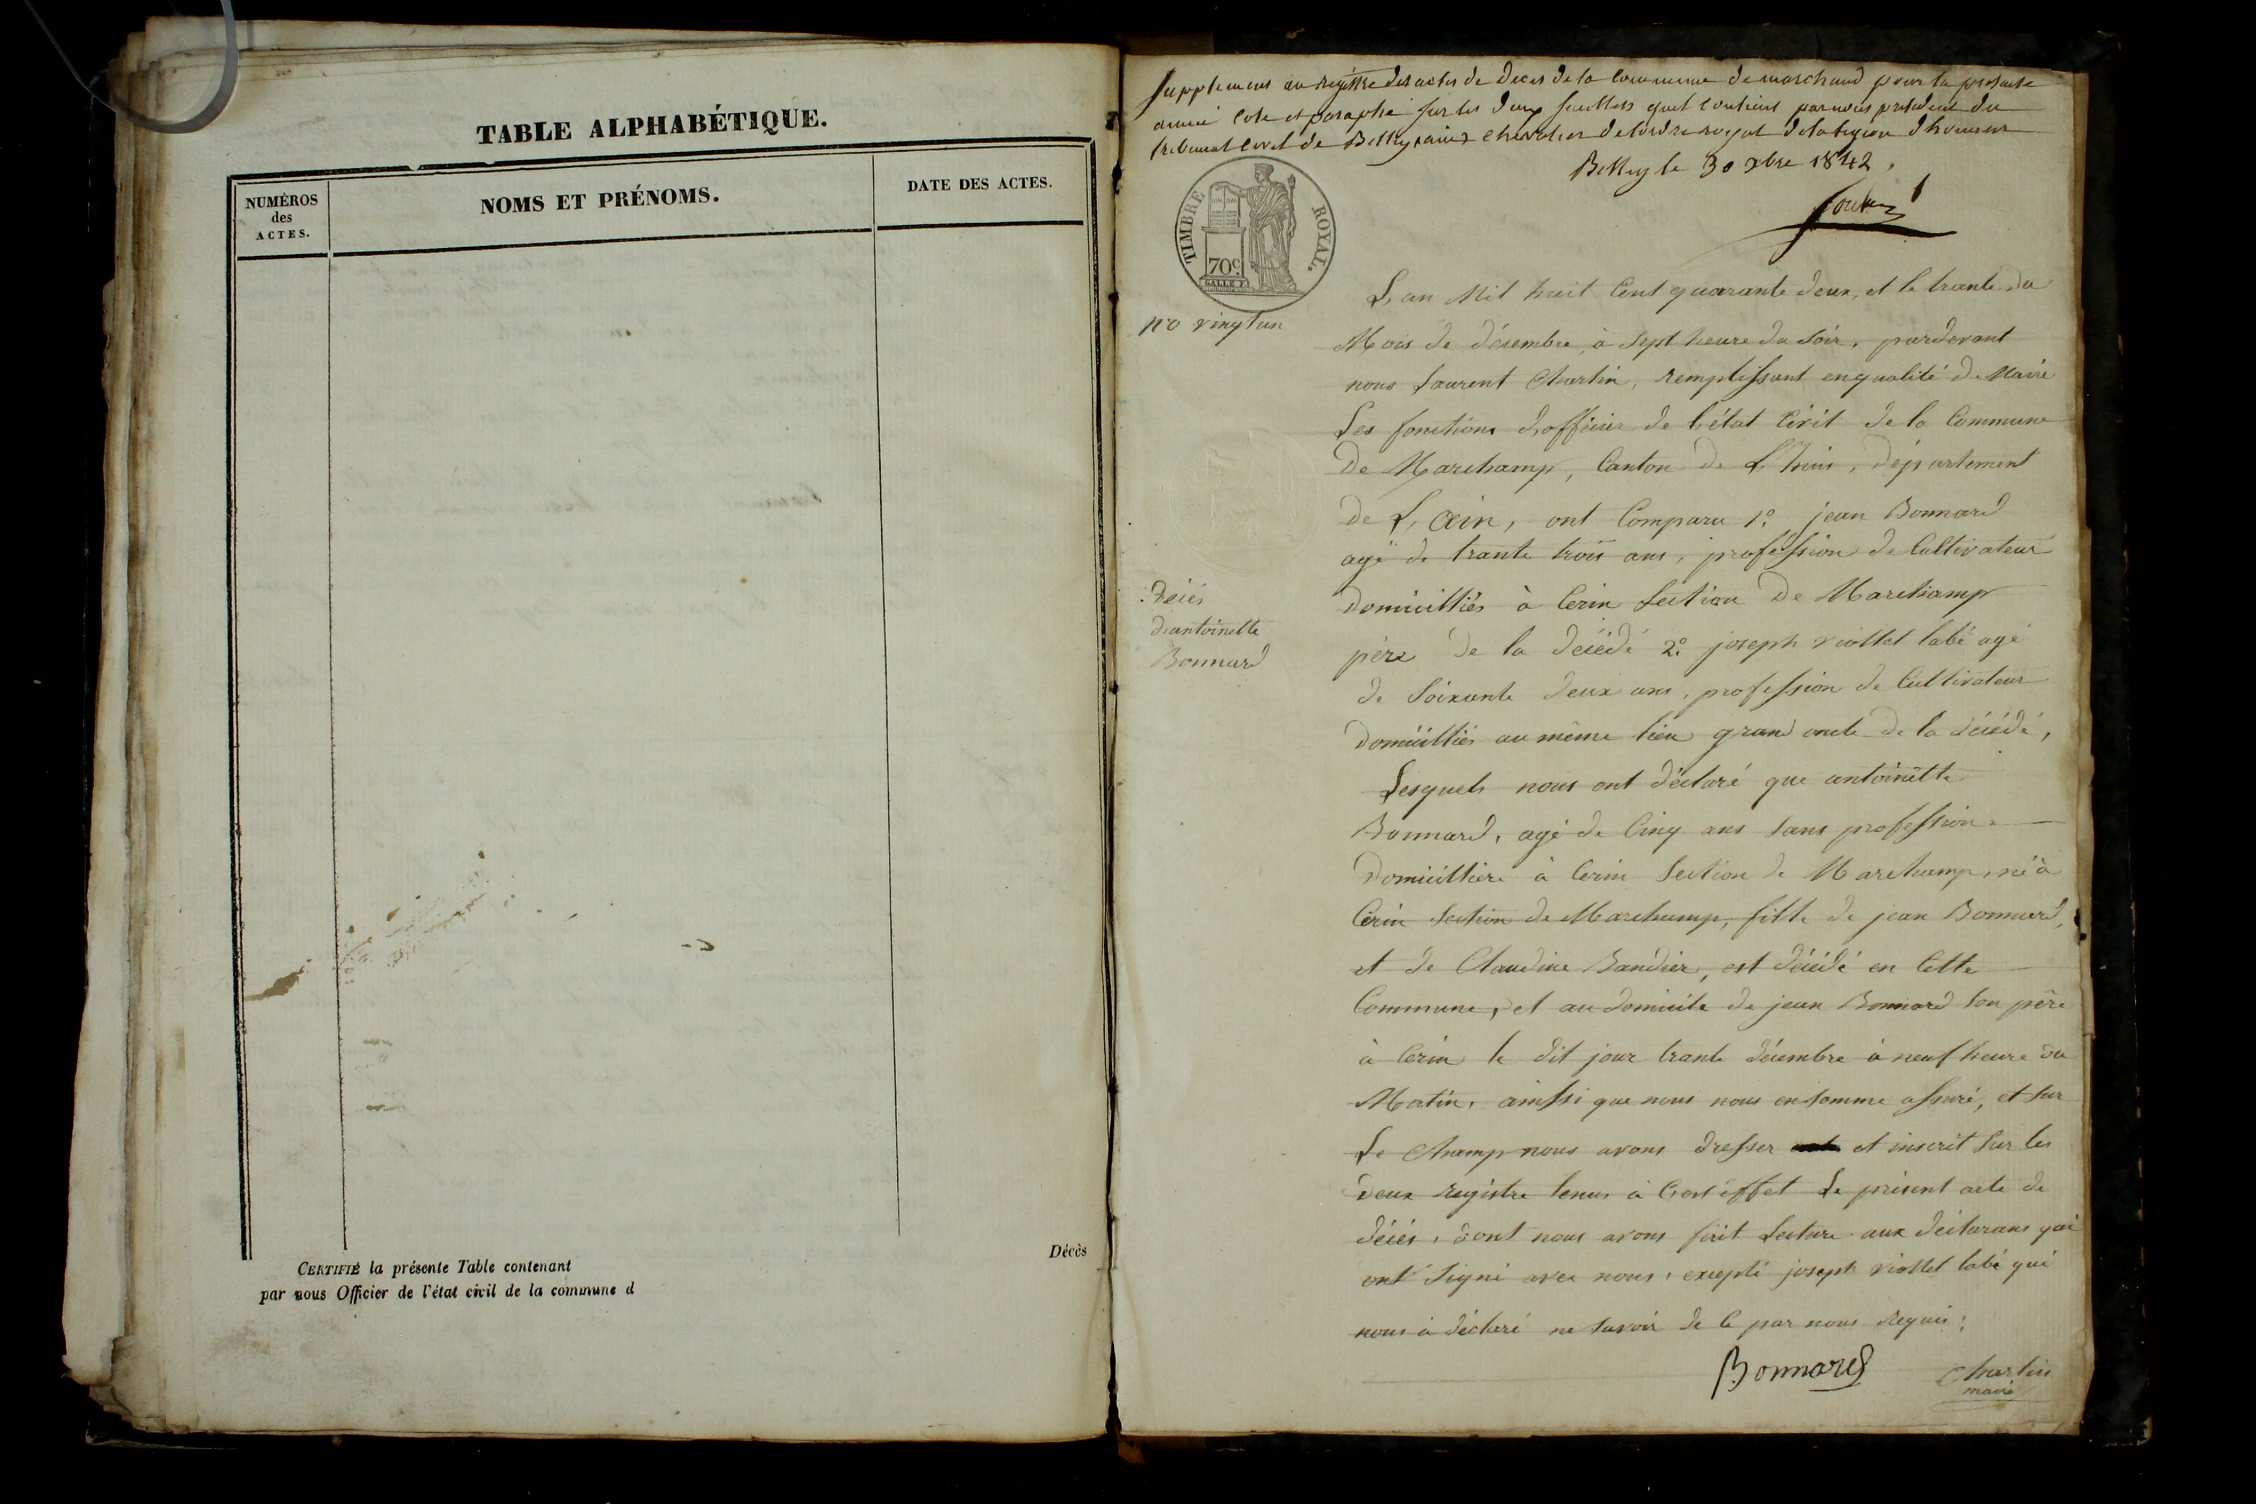 TABLE ALPHABÉTIQUE.
NUMÉROS
des
ACTES.
NOMS ET PRÉNOMS.
DATE DES ACTES.
CERTIFIÉ la présente Table contenant
par nous Officier de l'état civil de la commune d
Décès
Supplement au registre des actes de deces de la commune de marchand pour la presente
année cote et paraphé sur les deux feuillets quil contient par nous president du
tribunal civil de Belley, chevalier de lordre royal de la legion dhonneur
Belley le 30 xbre 1842.
TIMBRE ROYAL.
70c.
no vingtun
L,an Mil huit Cent quarante deux, et le trante du
Mois de désembre, à sept heure du soir, pardevant
nous Laurent Charlin, remplissant enqualité de Maire
Les fonctions d,officier de l'état Civil de la Commune
De Marchamp, Canton de L'huis, département
de L,ain, ont Comparu 1º. jean Bonnard
agé de trante trois ans, profession de Cultivateur
domicilliés à Cerin Section De Marchamp
père de la décédé 2º. joseph viollet labé agé
de Soixante deux ans, profession de Cultivateur
domicilliés au même lieu grand oncle de la décédé,
Lesquels nous ont déclaré que antoinette
Bonnard, agé de Cinq ans sans profession
domicilliere à Cerin Section de Marchamp, né à
Cerin Section de Marchamp, fille de jean Bonnard,
et de Claudine Bandier, est décédé en Cette
Commune, et au domicile de jean Bonnard son père
à Cerin le dit jour trante décembre à neuf heure du
Matin, ainssi que nous nous en somme assuré, et sur
Le Champ nous avons dresser et inscrit sur les
deux registre tenus à Cest éffet Le présent acte de
décés, dont nous avons fait Lecture aux déclarans qui
ont signé avec nous, excepté joseph viollet labé qui
nous à déclaré ne savoir de ce par nous requis;
Bonnard
Charlin
maire
Décés
d'antoinette
Bonnard